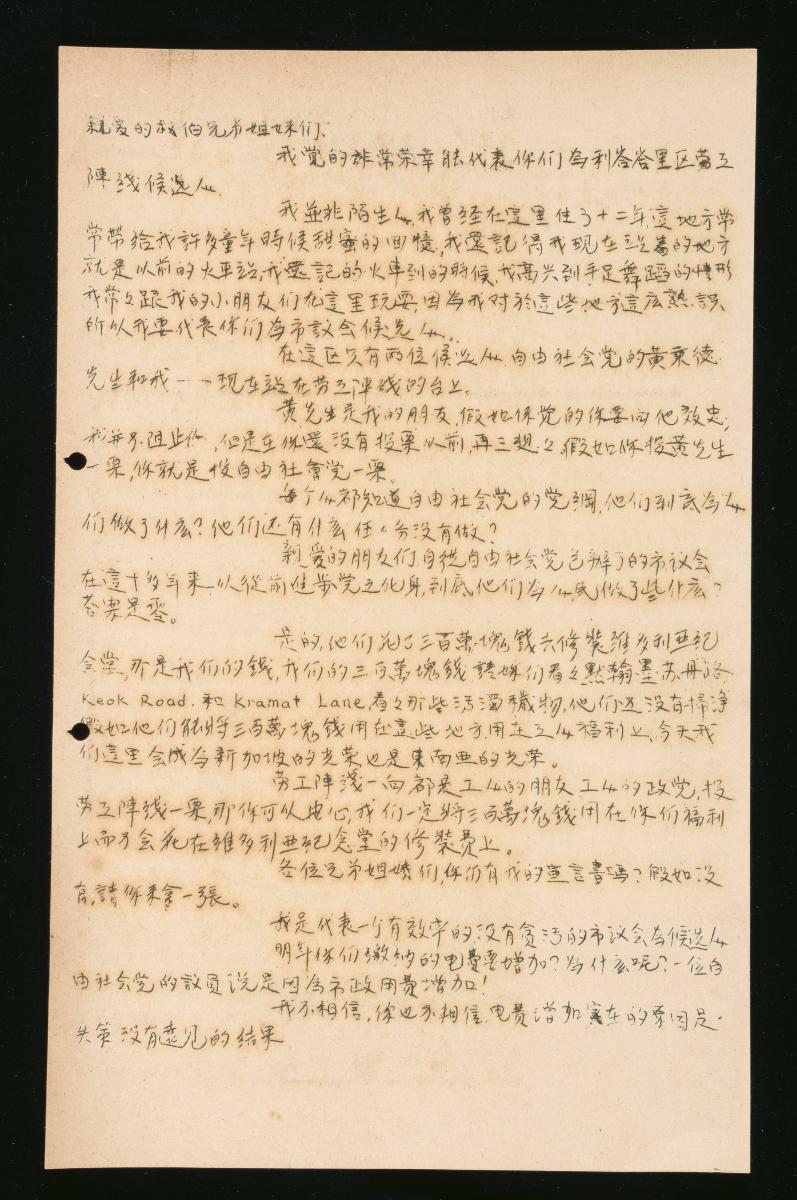 親爱的叔伯兄弟姐妹们、
我觉的非常荣幸能代表你们為利峇峇里区劳工
陣綫候选人.
我並非陌生人,我曾经在這里住了十二年,這地方常
常帶给我許多童年時候甜蜜的回憶,我還記得我現在站着的地方
就是以前的火車站,我還記的火車到的時候,我高兴到手足舞蹈的情形
我常々跟我的小朋友们在這里玩耍,因為我对於這些地方這広熟識
所以我要代表你们為市議会候先人。
在這区只有両位候选人.自由社会党的黃秉德
先生和我一一現在站在劳工陣綫的台上。
黄先生是我的朋友,假如你觉的你要向他效忠,
我并不阻止你,但是在你還没有投票以前,再三想々,假如你投黄先生
一票,你就是投自由社會党一票。
每个人都知道自由社会党的党綱,他们到底為人
们做了什広?他们还有什広任々务没有做?
親爱的朋友们,自從自由社会党包辦了的市议会
在這十多年来,以從前進步党之化身,到底他们為人民做了些什広?
荅案是零。
是的,他们花了三百萬塊錢去修裝維多利亜紀
念堂,那是我们的錢,我们的三百萬塊錢請妳们看々黙翰默苏丹路
Keok Road.和 Kramat Lane,看々那些污濁穢物,他们还没有掃净
假如他们能將三百萬塊錢用在這些地方,用在工人福利上,今天我
们這里会成為新加坡的光荣也是東南亜的光荣。
劳工陣淺一向都是工人的朋友工人的政党,投
劳工陣线一票,那你可以安心,我们一定將三百萬塊錢用在你们福利
上而不会花在維多利亜紀念堂的修裝費上。
各位兄弟姐妹们,你们有我的宣言書嗎?假如没
有,請你来拿一張。
我是代表一个有效率的没有貪污的市议会為候选人
明年你们繳纳的电費要增加?為什広呢?一位自
由社会党的议員说是因為市政用費增加!
我不相信,你也不相信.电費增加實在的原因是
失策没有遠见的结果